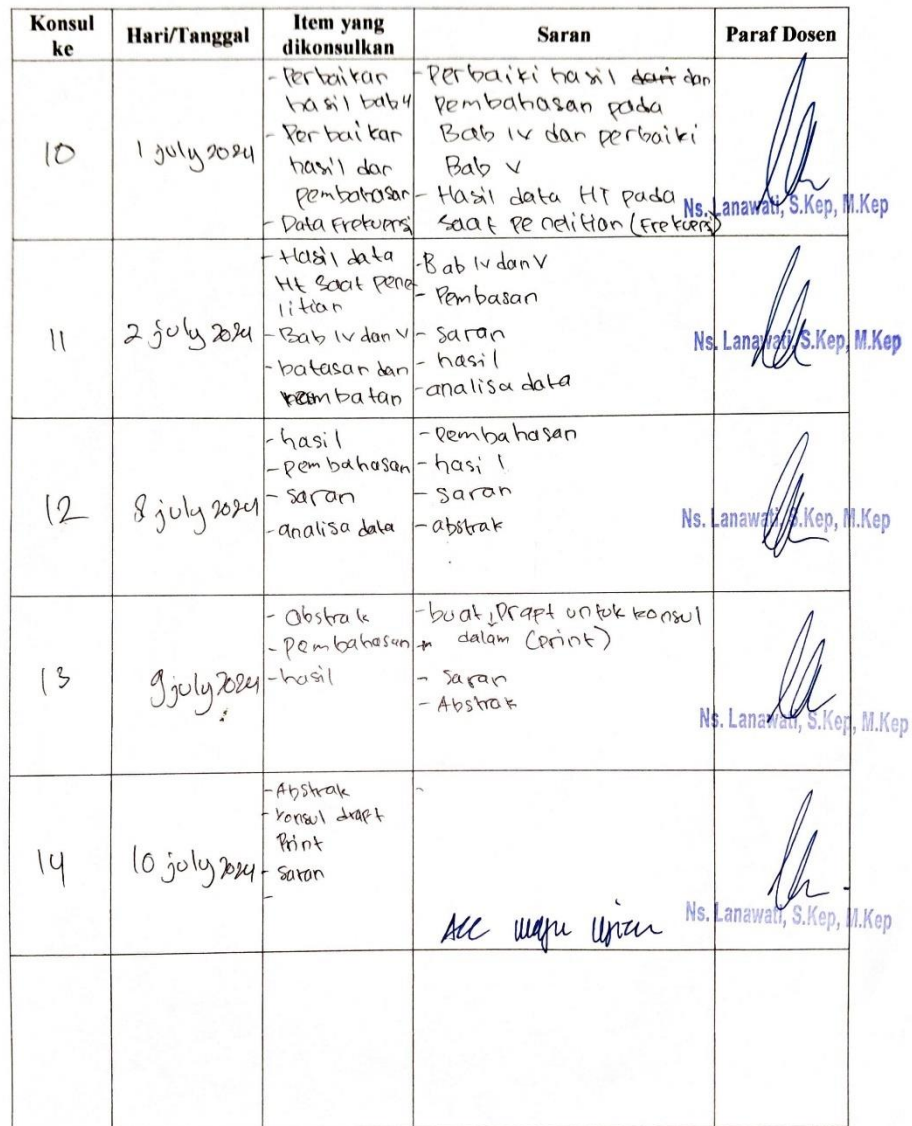 Konsul ke
Hari/Tanggal
Item yang dikonsulkan
Saran
Paraf Dosen
10
1 july 2024
- Perbaikan
hasil bab 4
- Perbaikan
hasil dan
pembahasan
- Data Frekuensi
- Perbaiki hasil dari dan
Pembahasan pada
Bab IV dan perbaiki
Bab V
- Hasil data HT pada
saat penelitian (Frekuensi)
Ns. Lanawati, S.Kep, M.Kep
11
2 july 2024
- Hasil data
Ht saat pene
litian
- Bab IV dan V
- batasan dan
hambatan
- Bab IV dan V
- Pembasan
- saran
- hasil
- analisa data
Ns. Lanawati, S.Kep, M.Kep
12
8 july 2024
- hasil
- pembahasan
- saran
- analisa data
- Pembahasan
- hasil
- saran
- abstrak
Ns. Lanawati, S.Kep, M.Kep
13
9 july 2024
- Abstrak
- Pembahasan
- hasil
- buat Drapt untuk konsul
dalam (print)
- Saran
- Abstrak
Ns. Lanawati, S.Kep, M.Kep
14
10 july 2024
- Abstrak
- Konsul drapt
Print
- Saran
-
-
ACC maju ujian
Ns. Lanawati, S.Kep, M.Kep